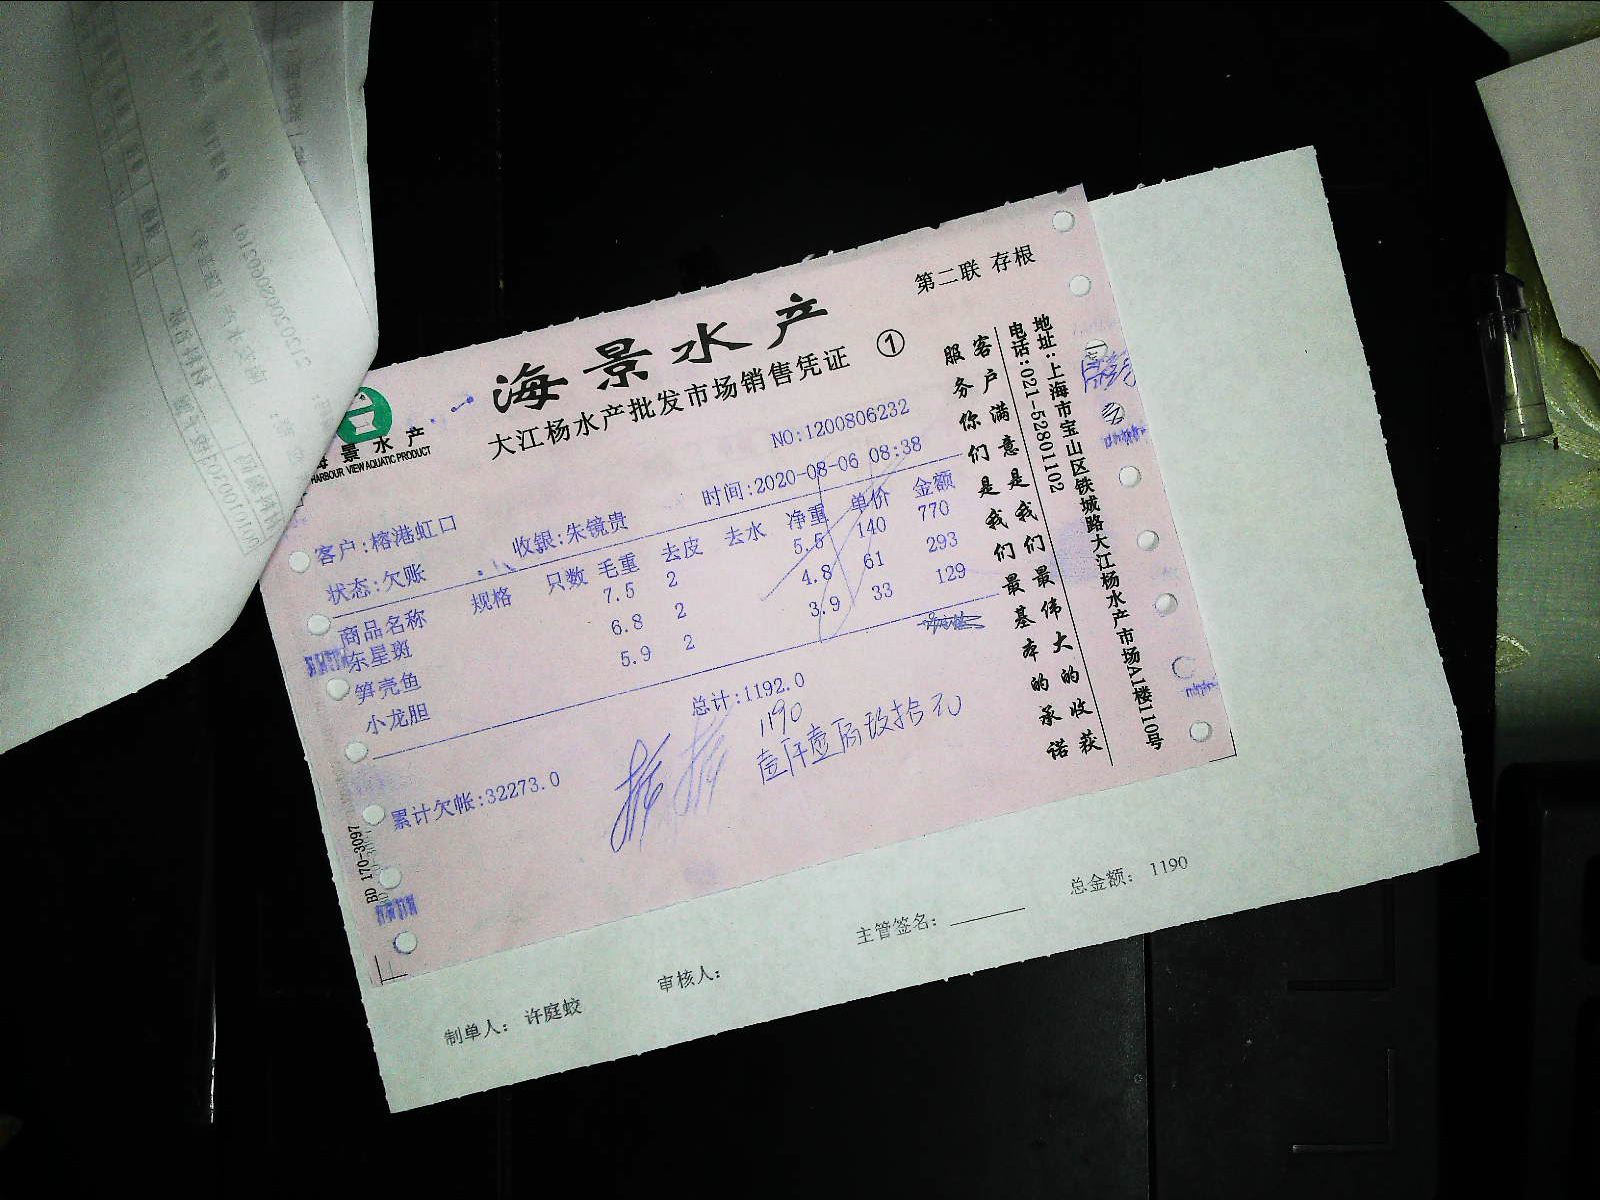 第二联 存根
海景水产
大江杨水产批发市场销售凭证 ①
海景水产
HARBOUR VIEW AQUATIC PRODUCT
NO:1200806232
客户:榕港虹口
收银:朱镜贵
时间:2020-08-06 08:38
状态:欠账
商品名称 规格 只数 毛重 去皮 去水 净重 单价 金额
东星斑 7.5 2 5.5 140 770
笋壳鱼 6.8 2 4.8 61 293
小龙胆 5.9 2 3.9 33 129
总计:1192.0
1190
壹仟壹佰玖拾元
累计欠帐:32273.0
客户满意是我们最伟大的收获
服务你们是我们最基本的承诺
地址:上海市宝山区铁城路大江杨水产市场A1楼110号
电话:021-52801102
BD 170-3097
制单人: 许庭蛟
审核人:
主管签名:
总金额: 1190